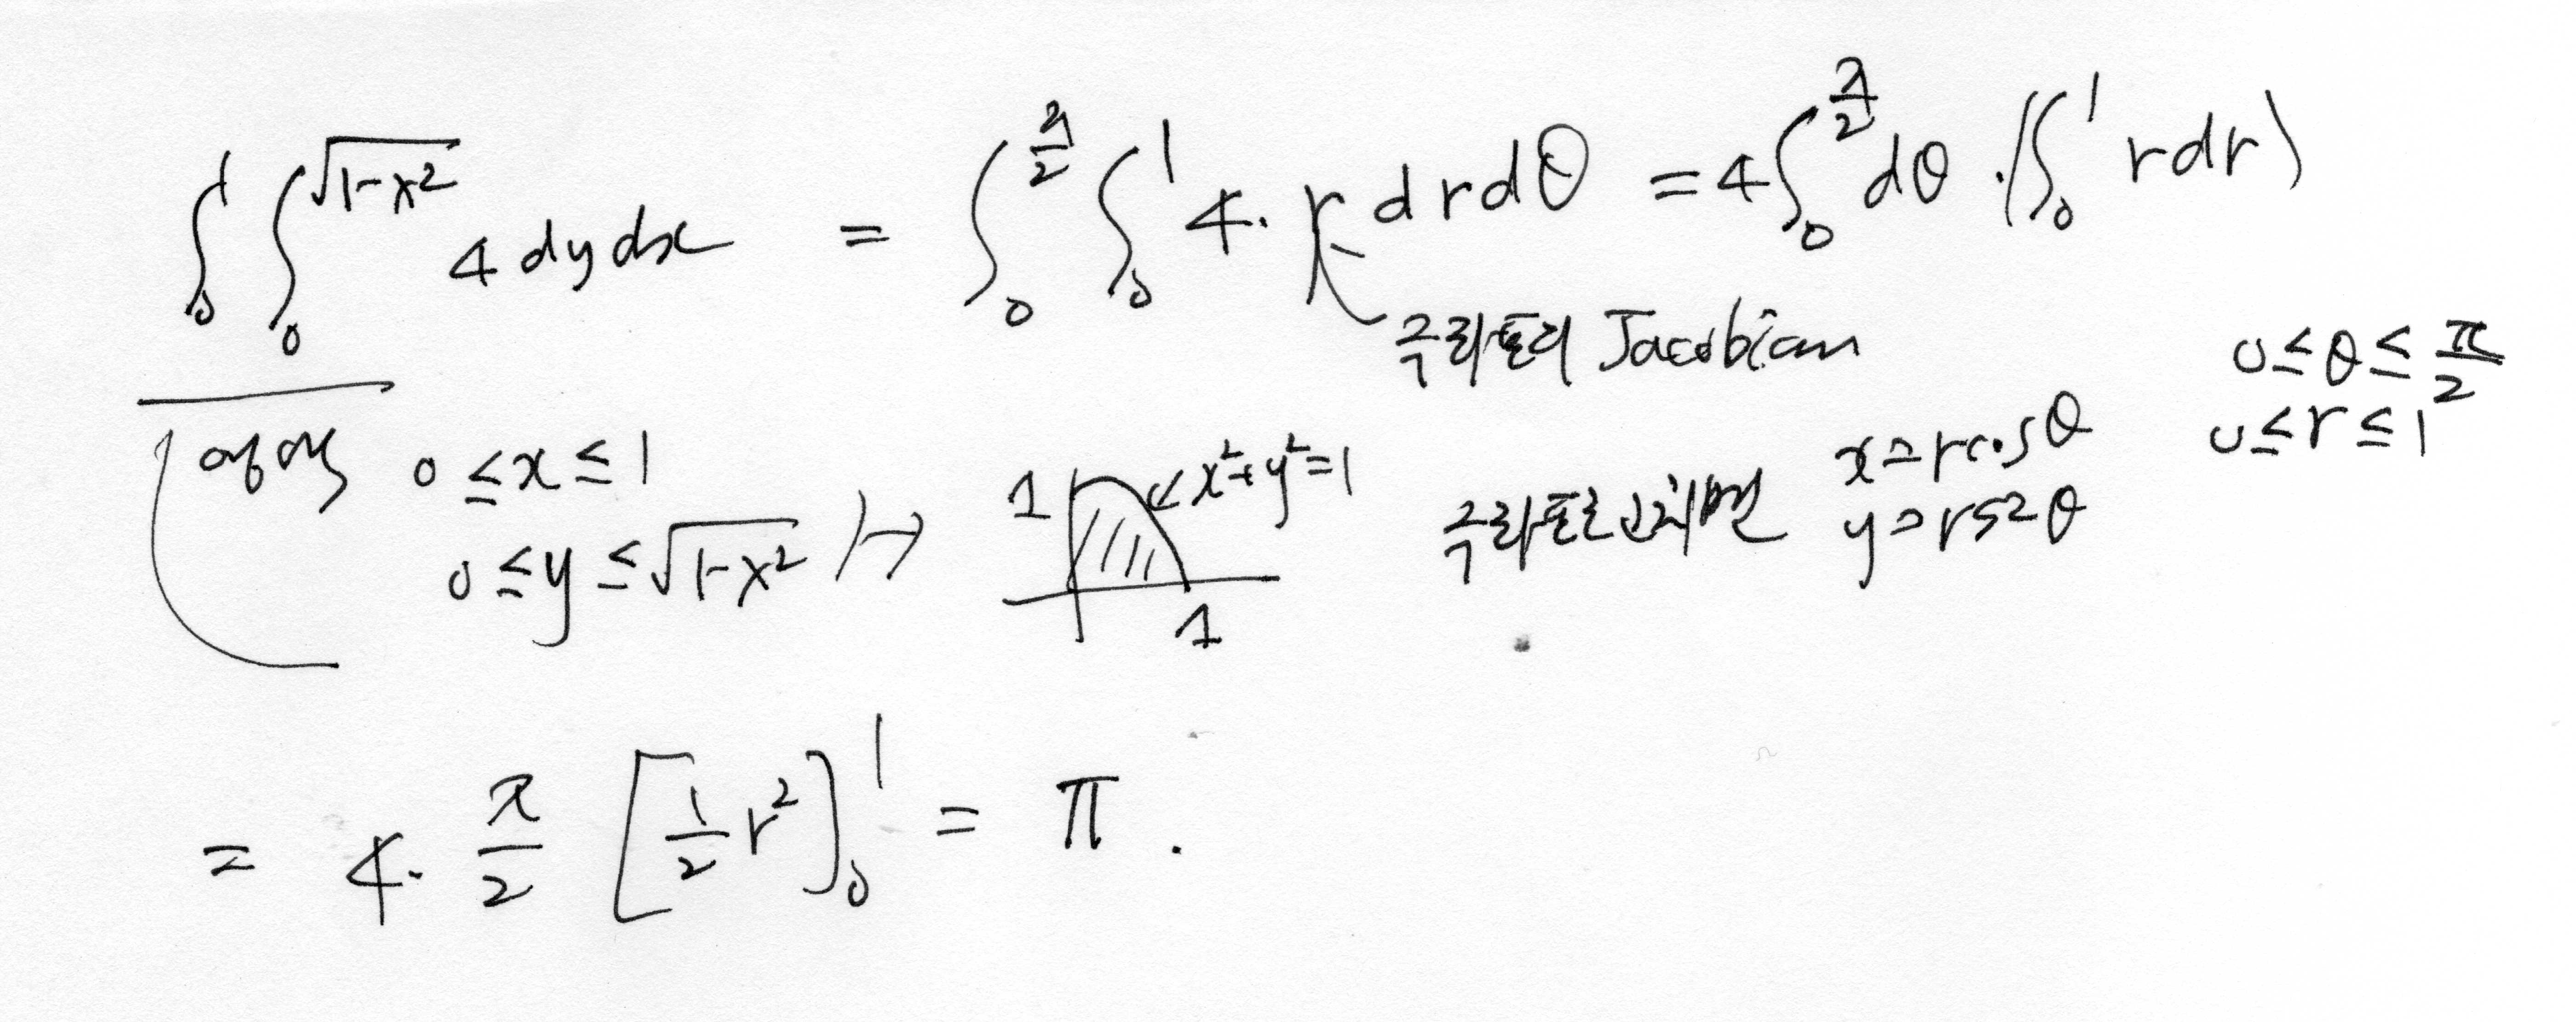 ∫₀¹ ∫₀^√(1-x²) 4 dy dx = ∫₀^(π/2) ∫₀¹ 4· r dr dθ = 4 ∫₀^(π/2) dθ · (∫₀¹ r dr)
극좌표의 Jacobian
영역 0 ≤ x ≤ 1
0 ≤ y ≤ √(1-x²) ↦
1
x²+y²=1
1
극좌표로 고치면 x = r cos θ
y = r sin θ
0 ≤ θ ≤ π/2
0 ≤ r ≤ 1
= 4· π/2 [1/2 r²]₀¹ = π .